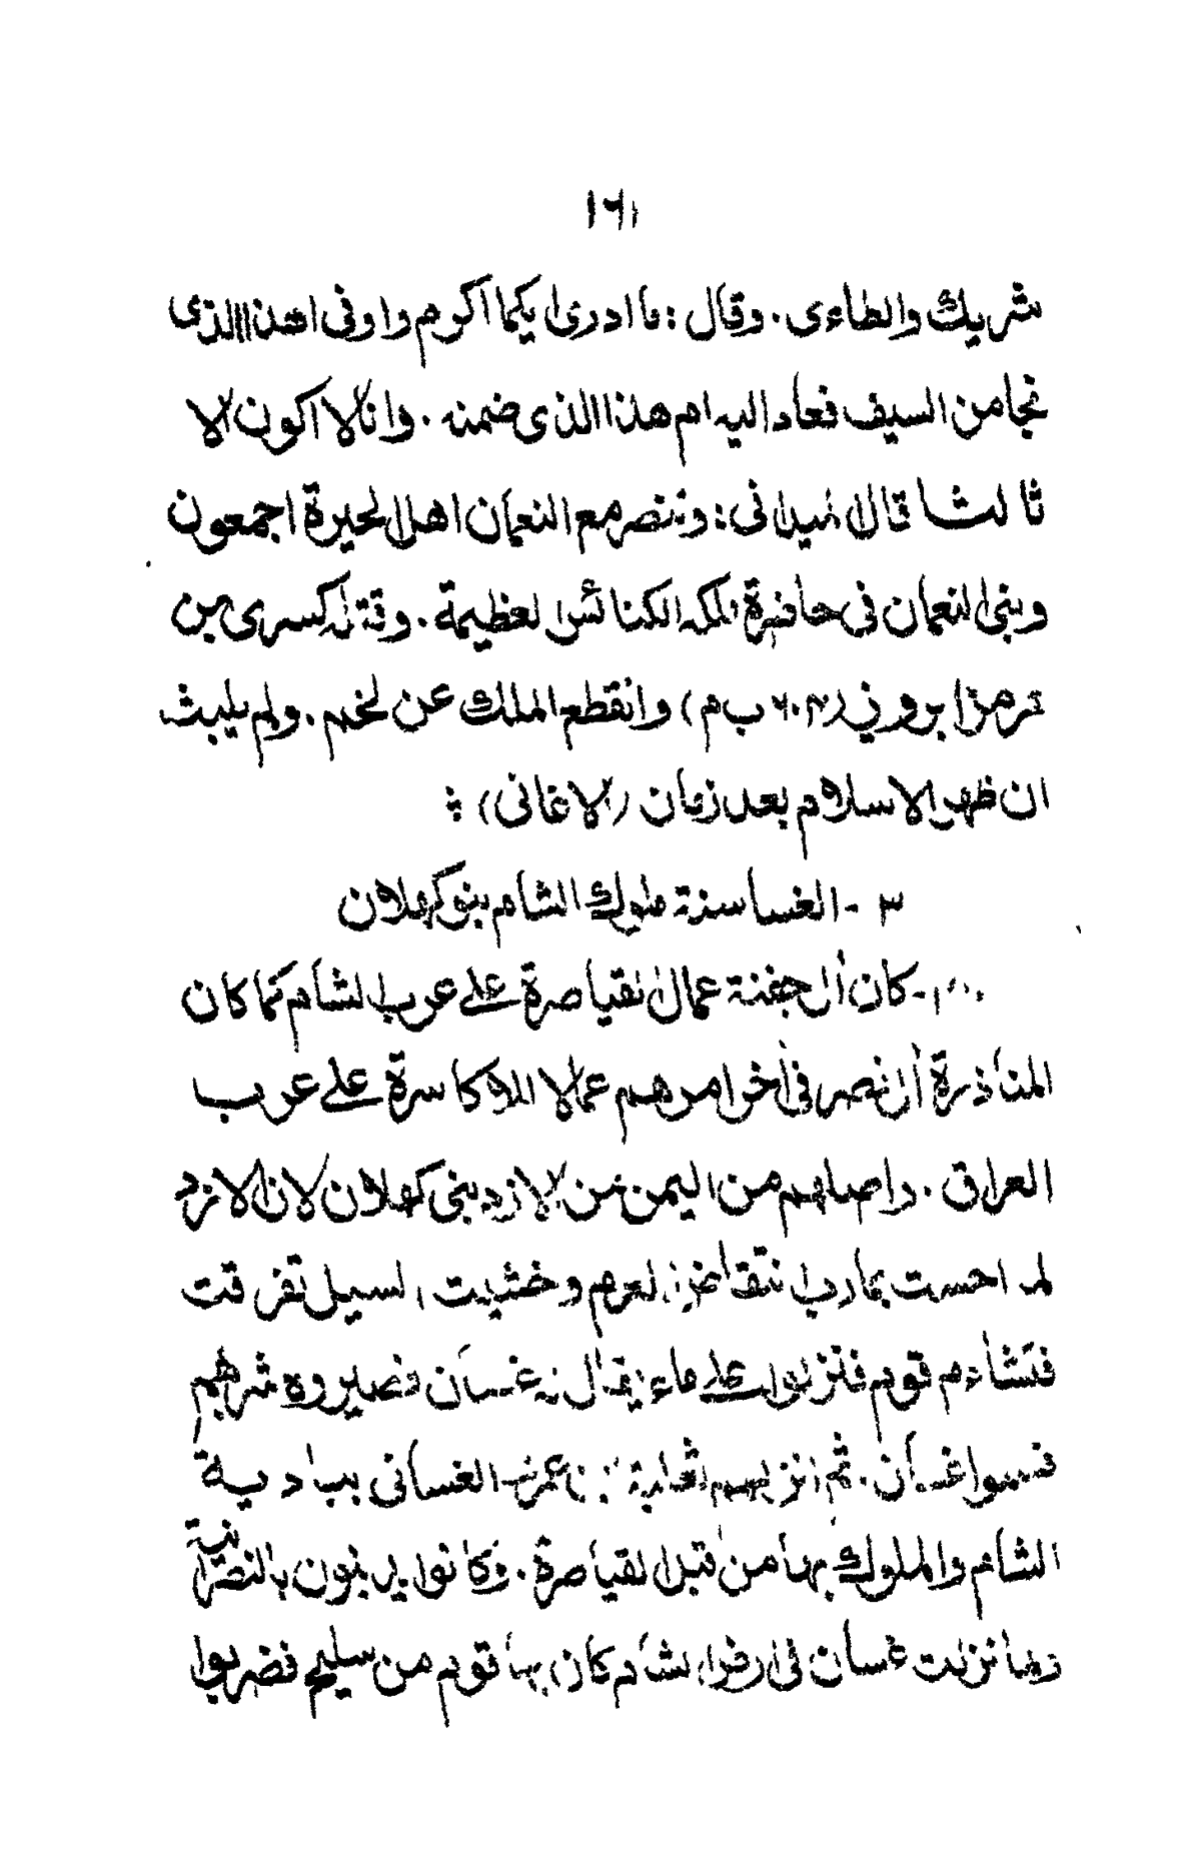 ١٦١
شريك والطاءى. وقال: ما ادرى ايكما اكرم واوفى اهذا الذى
نجا من السيف فعاد اليه ام هذا الذى ضمنه. وانا لا اكون الا
ثالثا قال لميدانى: وتنصر مع النعمان اهل الحيرة اجمعون
وبنى النعمان فى حاضرة ملكه الكنائس العظيمة. وقتله كسرى بن
هرمز ابرويز (٦٠٤ ب م) وانقطع الملك عن لخم. ولم يلبث
ان ظهر الاسلام بعد زمان (الاغانى) :
٣ - الغساسنة ملوك الشام بنو كهلان
كان آل جفنة عمال القياصرة على عرب الشام كما كان
المناذرة آل نصر فى آخر امرهم عمالا للاكاسرة على عرب
العراق. واصلهم من اليمن من الازد بنى كهلان لان الازد
لما احست بمارب انتقاض العرم وخشيت السيل تفرقت
فتشاءم قوم فنزلوا على ماء يقال له غسان فصيروه شربهم
فسموا غسان. ثم انزلهم ثعلبة بن عمرو الغسانى ببادية
الشام والملوك بها من قبل القياصرة. وكانوا يدينون بالنصرانية
ولما نزلت غسان فى ارض الشام كان بها قوم من سليح فضربوا